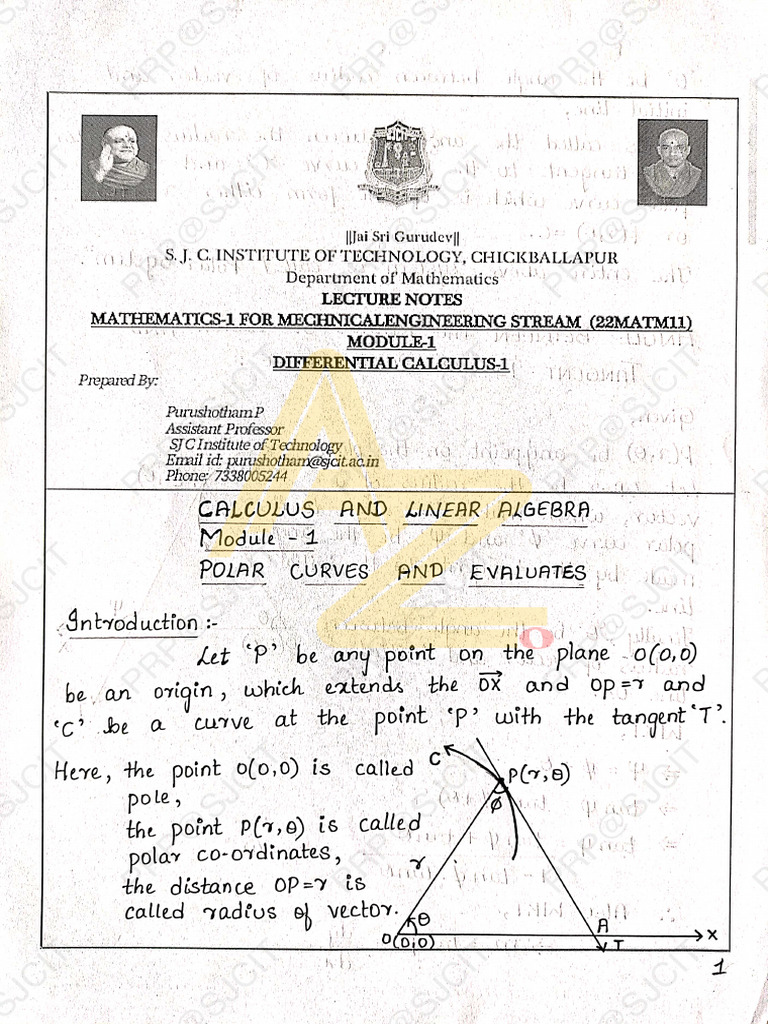 SJCIT
||Jai Sri Gurudev||
S. J. C. INSTITUTE OF TECHNOLOGY, CHICKBALLAPUR
Department of Mathematics
LECTURE NOTES
MATHEMATICS-1 FOR MECHNICALENGINEERING STREAM (22MATM11)
MODULE-1
DIFFERENTIAL CALCULUS-1
Prepared By:
Purushotham P
Assistant Professor
SJC Institute of Technology
Email id: purushotham@sjcit.ac.in
Phone: 7338005244
CALCULUS AND LINEAR ALGEBRA
Module - 1
POLAR CURVES AND EVALUATES
Introduction :-
Let 'P' be any point on the plane O(0,0)
be an origin, which extends the OX and OP=r and
'C' be a curve at the point 'P' with the tangent 'T'.
Here, the point O(0,0) is called
pole,
the point P(r,θ) is called
polar co-ordinates,
the distance OP=r is
called radius of vector.
C
P(r,θ)
φ
r
θ
O(0,0)
A
T
X
1
AZ
O
PRP@SJCIT